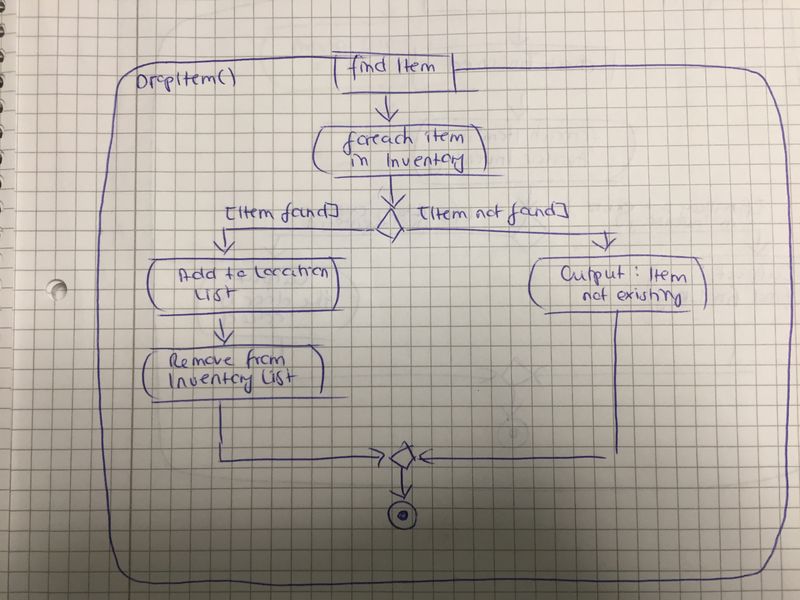 DropItem()
find Item
foreach item
in Inventory
[Item fand]
[Item not fand]
Add to Location
List
Output : Item
not existing
Remove from
Inventory List